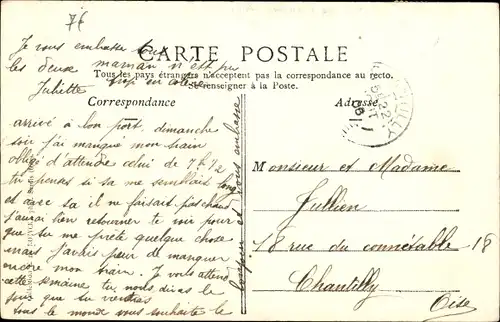 76
Je vous embrasse tous
les deux maman n'est pas
trop en colère
Juliette
CARTE POSTALE
Tous les pays étrangers n'acceptent pas la correspondance au recto.
Se renseigner à la Poste.
Correspondance
Adresse
arrivé à bon port, dimanche
soir j'ai manqué mon train
obligé d'attendre celui de 7h 1/2
tu penses si sa me semblait long
et avec sa il ne faisait pas chaud
j'aurai bien retourner te voir pour
que tu me prète quelque chose
mais j'avais peur de manquer
encore mon train. Je vous attend
cette semaine tu nous diras le
jour que tu viendras
tous le monde vous souhaite le
bonjour et vous embrasse
Monsieur et Madame
Jullien
18 rue du connétable 18
Chantilly
Oise